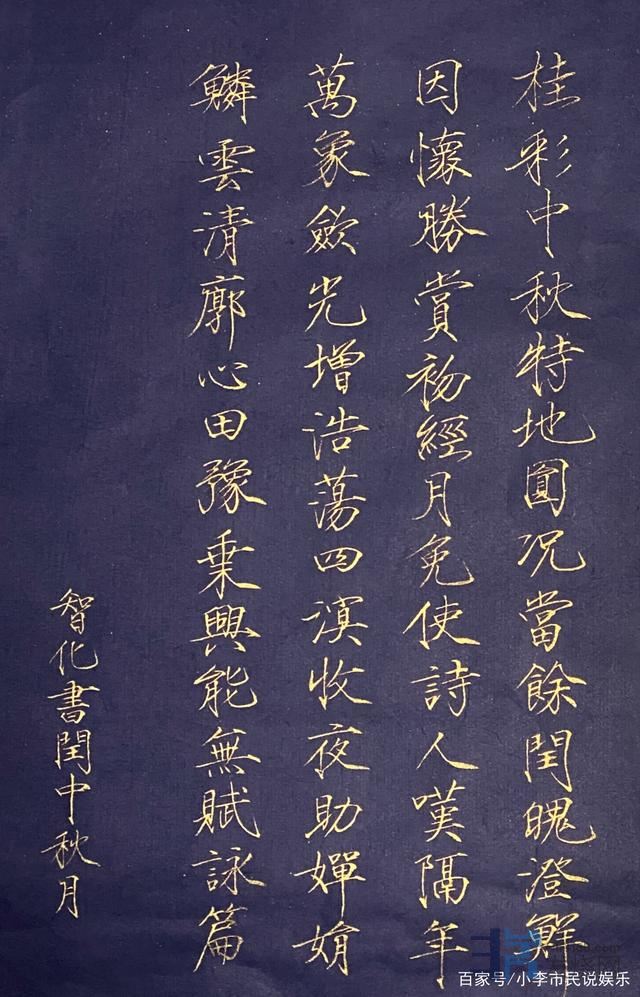 桂彩中秋特地圓況當餘閏魄澄鮮
因懷勝賞初經月免使詩人嘆隔年
萬象歛光增浩蕩四溟收夜助嬋娟
鱗雲清廓心田豫乗興能無賦詠篇
智化書閏中秋月
百家号/小李市民说娱乐